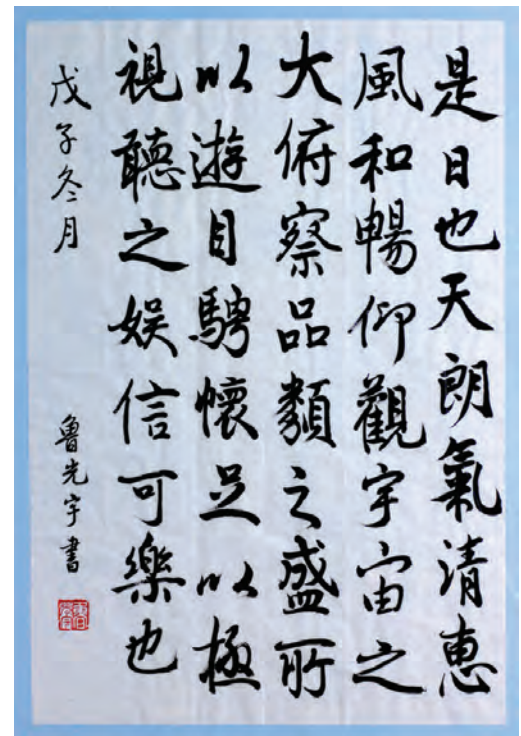 是日也天朗氣清惠
風和暢仰觀宇宙之
大俯察品類之盛所
以遊目騁懷足以極
視聽之娛信可樂也
戊子冬月
魯光宇書